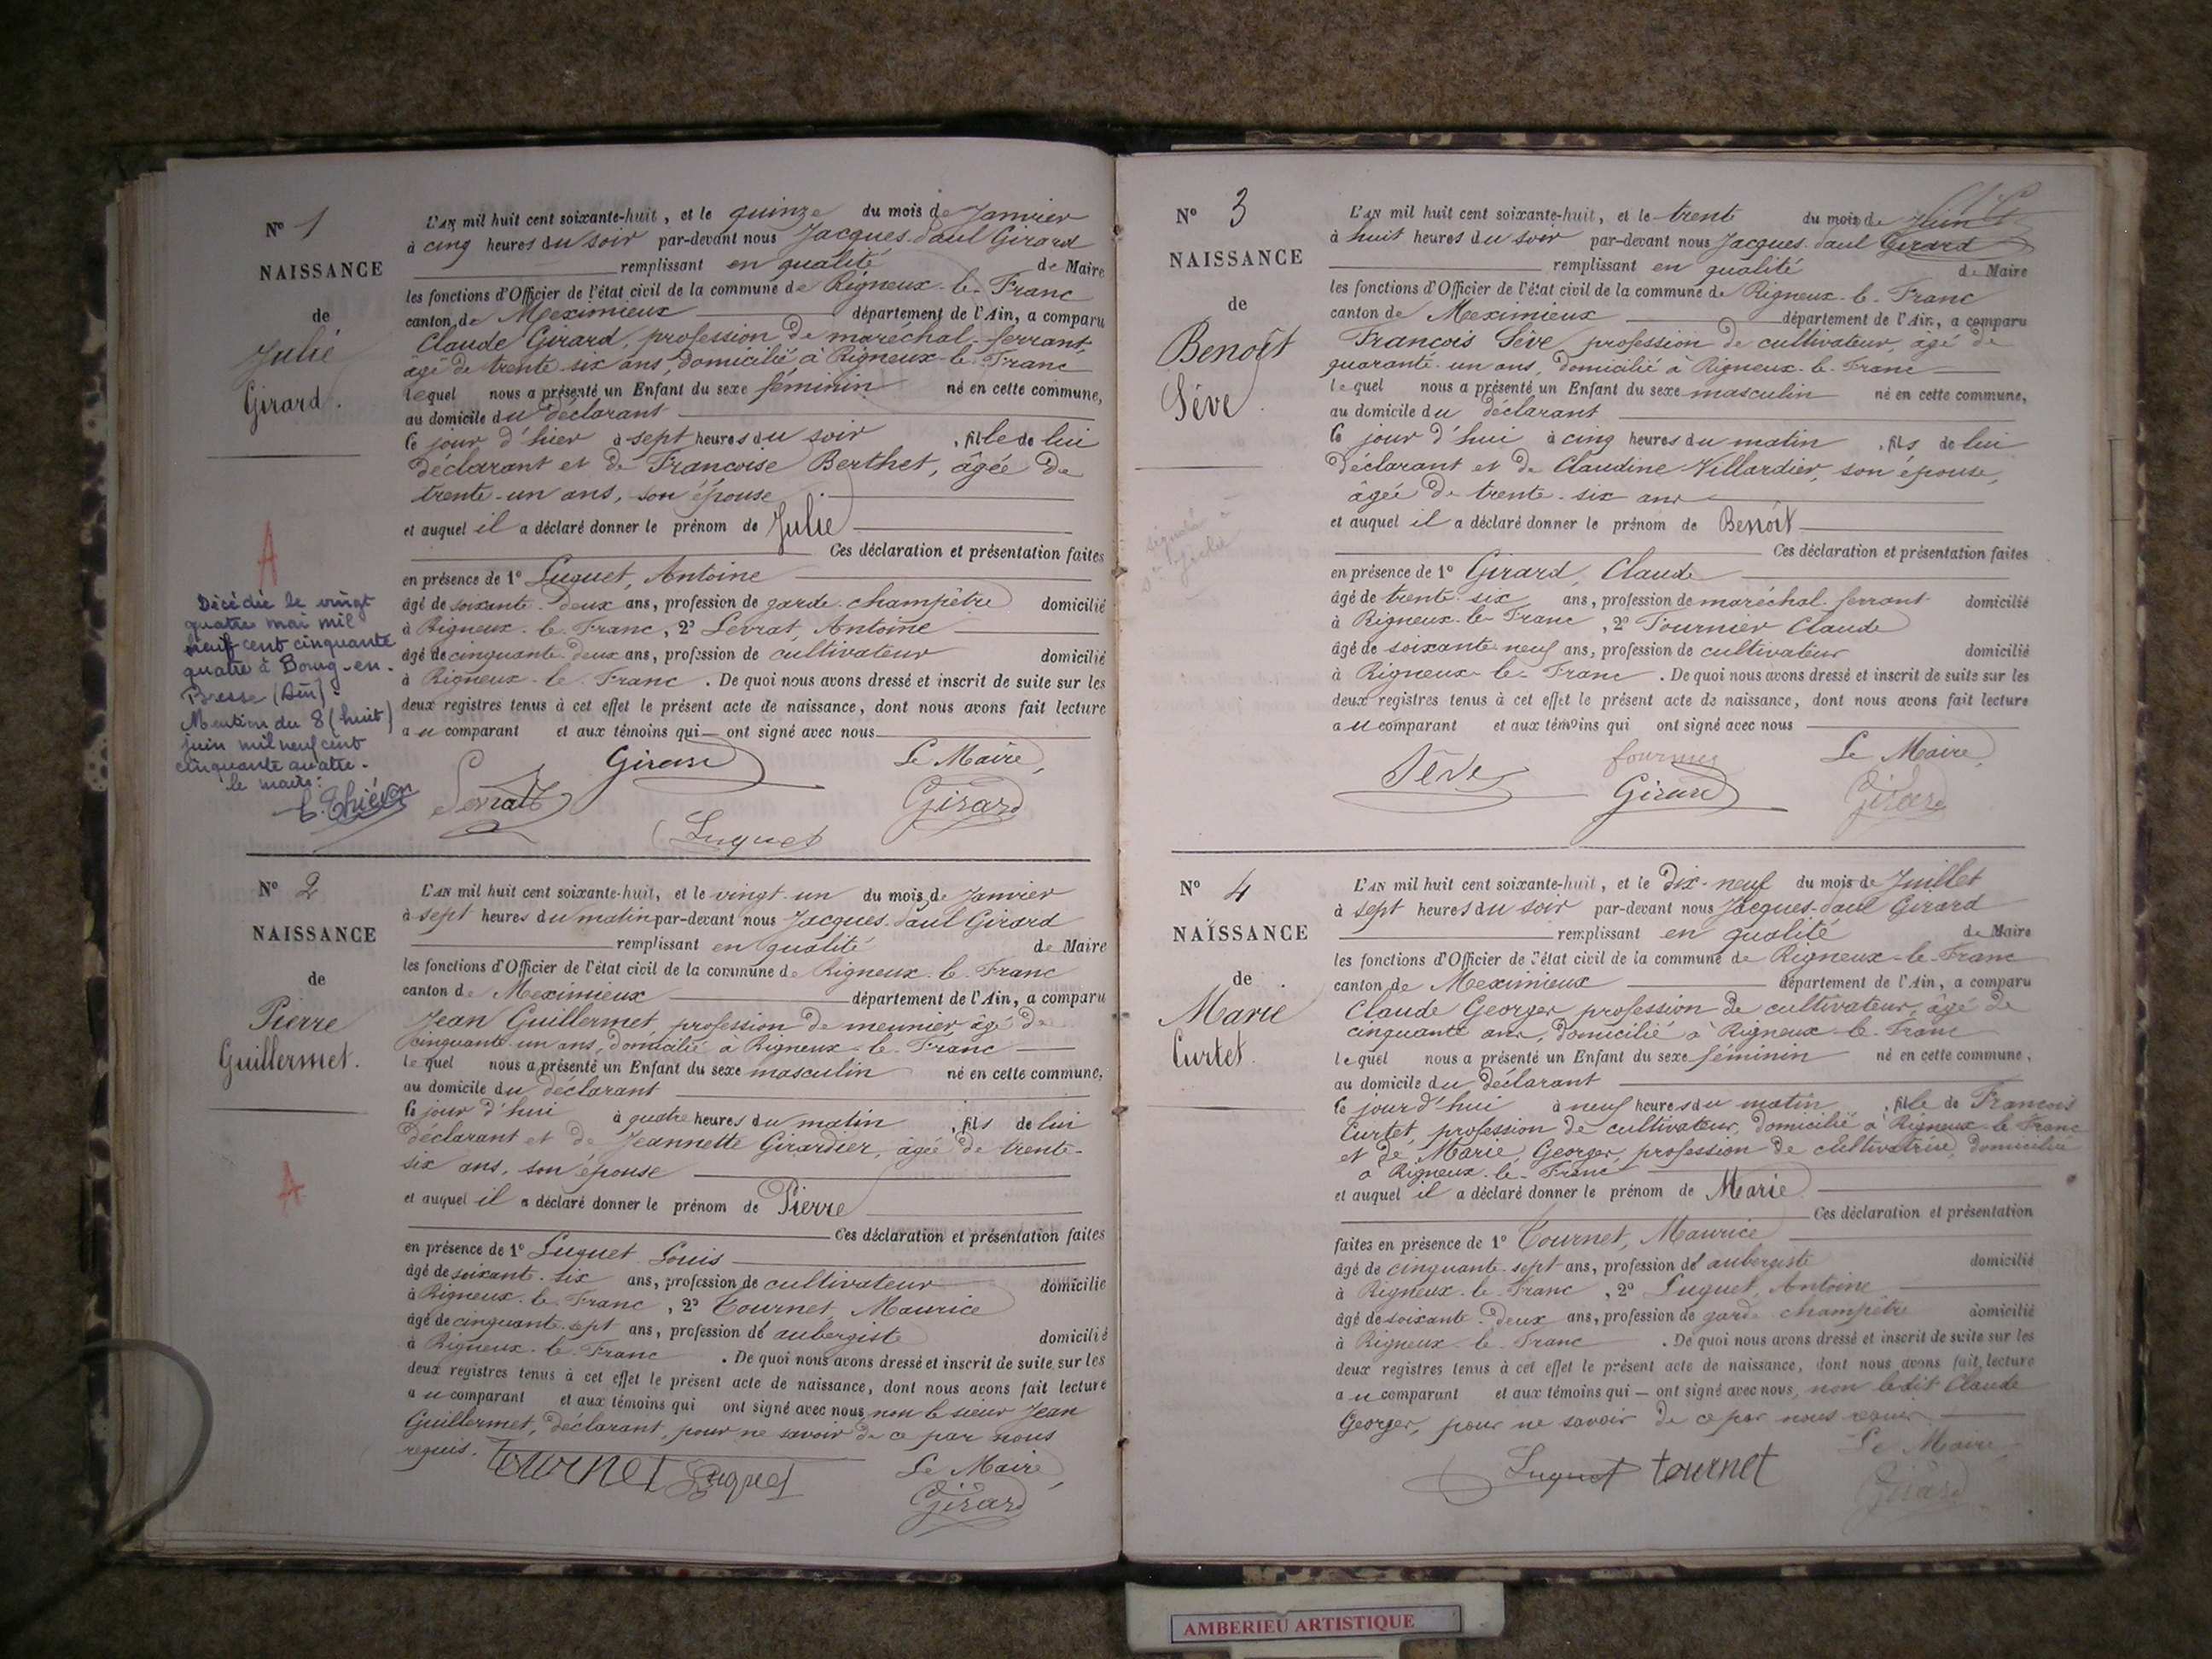 Nº 1
NAISSANCE
de
Julie
Girard.
L'AN mil huit cent soixante-huit, et le quinze du mois de Janvier
à cinq heures du soir par-devant nous Jacques-Paul Girard
remplissant en qualité de Maire
les fonctions d'Officier de l'état civil de la commune de Rigneux-le-Franc
canton de Meximieux département de l'Ain, a comparu
Claude Girard, profession de maréchal-ferrant,
âgé de trente-six ans, domicilié à Rigneux-le-Franc
lequel nous a présenté un Enfant du sexe féminin né en cette commune,
au domicile du déclarant
le jour d'hier à sept heures du soir, fille de lui
déclarant et de Francoise Berthet, âgée de
trente-un ans, son épouse
et auquel il a déclaré donner le prénom de Julie
Ces déclaration et présentation faites
en présence de 1º Luquet, Antoine
âgé de soixante-deux ans, profession de garde-champêtre domicilié
à Rigneux-le-Franc, 2º Levrat, Antoine
âgé de cinquante-deux ans, profession de cultivateur domicilié
à Rigneux-le-Franc. De quoi nous avons dressé et inscrit de suite sur les
deux registres tenus à cet effet le présent acte de naissance, dont nous avons fait lecture
au comparant et aux témoins qui ont signé avec nous
Levrat Girard Le Maire,
Luquet Girard
A
Décédée le vingt
quatre mai mil
neuf cent cinquante
quatre à Bourg-en-
Bresse (Ain).
Mention du 8 (huit)
juin mil neuf cent
cinquante quatre.
le maire:
Nº 2
NAISSANCE
de
Pierre
Guillermet.
A
L'AN mil huit cent soixante-huit, et le vingt-un du mois de Janvier
à sept heures du matin par-devant nous Jacques-Paul Girard
remplissant en qualité de Maire
les fonctions d'Officier de l'état civil de la commune de Rigneux-le-Franc
canton de Meximieux département de l'Ain, a comparu
Jean Guillermet, profession de meunier âgé de
cinquante-un ans, domicilié à Rigneux-le-Franc
lequel nous a présenté un Enfant du sexe masculin né en cette commune,
au domicile du déclarant
le jour d'hui à quatre heures du matin, fils de lui
déclarant et de Jeannette Girardier, âgée de trente-
six ans, son épouse
et auquel il a déclaré donner le prénom de Pierre
Ces déclaration et présentation faites
en présence de 1º Luquet Louis
âgé de soixante-six ans, profession de cultivateur domicilié
à Rigneux-le-Franc, 2º Tournet, Maurice
âgé de cinquante-sept ans, profession d'aubergiste domicilié
à Rigneux-le-Franc. De quoi nous avons dressé et inscrit de suite sur les
deux registres tenus à cet effet le présent acte de naissance, dont nous avons fait lecture
au comparant et aux témoins qui ont signé avec nous, non le sieur Jean
Guillermet, déclarant, pour ne savoir de ce par nous
requis. tournet Luquet Le Maire
Girard
Nº 3
NAISSANCE
de
Benoît
Sève.
L'AN mil huit cent soixante-huit, et le trente du mois de Juin
à huit heures du soir par-devant nous Jacques-Paul Girard
remplissant en qualité de Maire
les fonctions d'Officier de l'état civil de la commune de Rigneux-le-Franc
canton de Meximieux département de l'Ain, a comparu
Francois Sève, profession de cultivateur, âgé de
quarante-un ans, domicilié à Rigneux-le-Franc
lequel nous a présenté un Enfant du sexe masculin né en cette commune,
au domicile du déclarant
le jour d'hui à cinq heures du matin, fils de lui
déclarant et de Claudine Villardier, son épouse,
âgée de trente-six ans
et auquel il a déclaré donner le prénom de Benoît
Ces déclaration et présentation faites
en présence de 1º Girard, Claude
âgé de trente-six ans, profession de maréchal-ferrant domicilié
à Rigneux-le-Franc, 2º Fournier Claude
âgé de soixante-neuf ans, profession de cultivateur domicilié
à Rigneux-le-Franc. De quoi nous avons dressé et inscrit de suite sur les
deux registres tenus à cet effet le présent acte de naissance, dont nous avons fait lecture
au comparant et aux témoins qui ont signé avec nous
Sève fournier Le Maire,
Girard Girard
Nº 4
NAISSANCE
de
Marie
Curtet.
L'AN mil huit cent soixante-huit, et le dix-neuf du mois de Juillet
à sept heures du soir par-devant nous Jacques-Paul Girard
remplissant en qualité de Maire
les fonctions d'Officier de l'état civil de la commune de Rigneux-le-Franc
canton de Meximieux département de l'Ain, a comparu
Claude Georger profession de cultivateur, âgé de
cinquante ans, domicilié à Rigneux-le-Franc
lequel nous a présenté un Enfant du sexe féminin né en cette commune,
au domicile du déclarant
le jour d'hui à neuf heures du matin, fille de Francois
Curtet, profession de cultivateur, domicilié à Rigneux-le-Franc
et de Marie Georger, profession de cultivatrice, domiciliée
à Rigneux-le-Franc
et auquel il a déclaré donner le prénom de Marie
Ces déclaration et présentation
faites en présence de 1º Tournet, Maurice
âgé de cinquante-sept ans, profession d'aubergiste domicilié
à Rigneux-le-Franc, 2º Luquet, Antoine
âgé de soixante-deux ans, profession de garde-champêtre domicilié
à Rigneux-le-Franc. De quoi nous avons dressé et inscrit de suite sur les
deux registres tenus à cet effet le présent acte de naissance, dont nous avons fait lecture
au comparant et aux témoins qui ont signé avec nous, non ledit Claude
Georger, pour ne savoir de ce par nous requis.
Luquet tournet Le Maire
Girard
AMBERIEU ARTISTIQUE